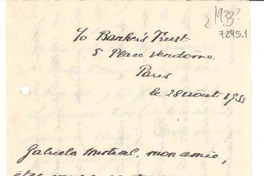 1933?
7245.1
To Banker's Trust
5 Place Vendôme
Paris
le 28 août 1933
Gabriela Mistral, mon amie,